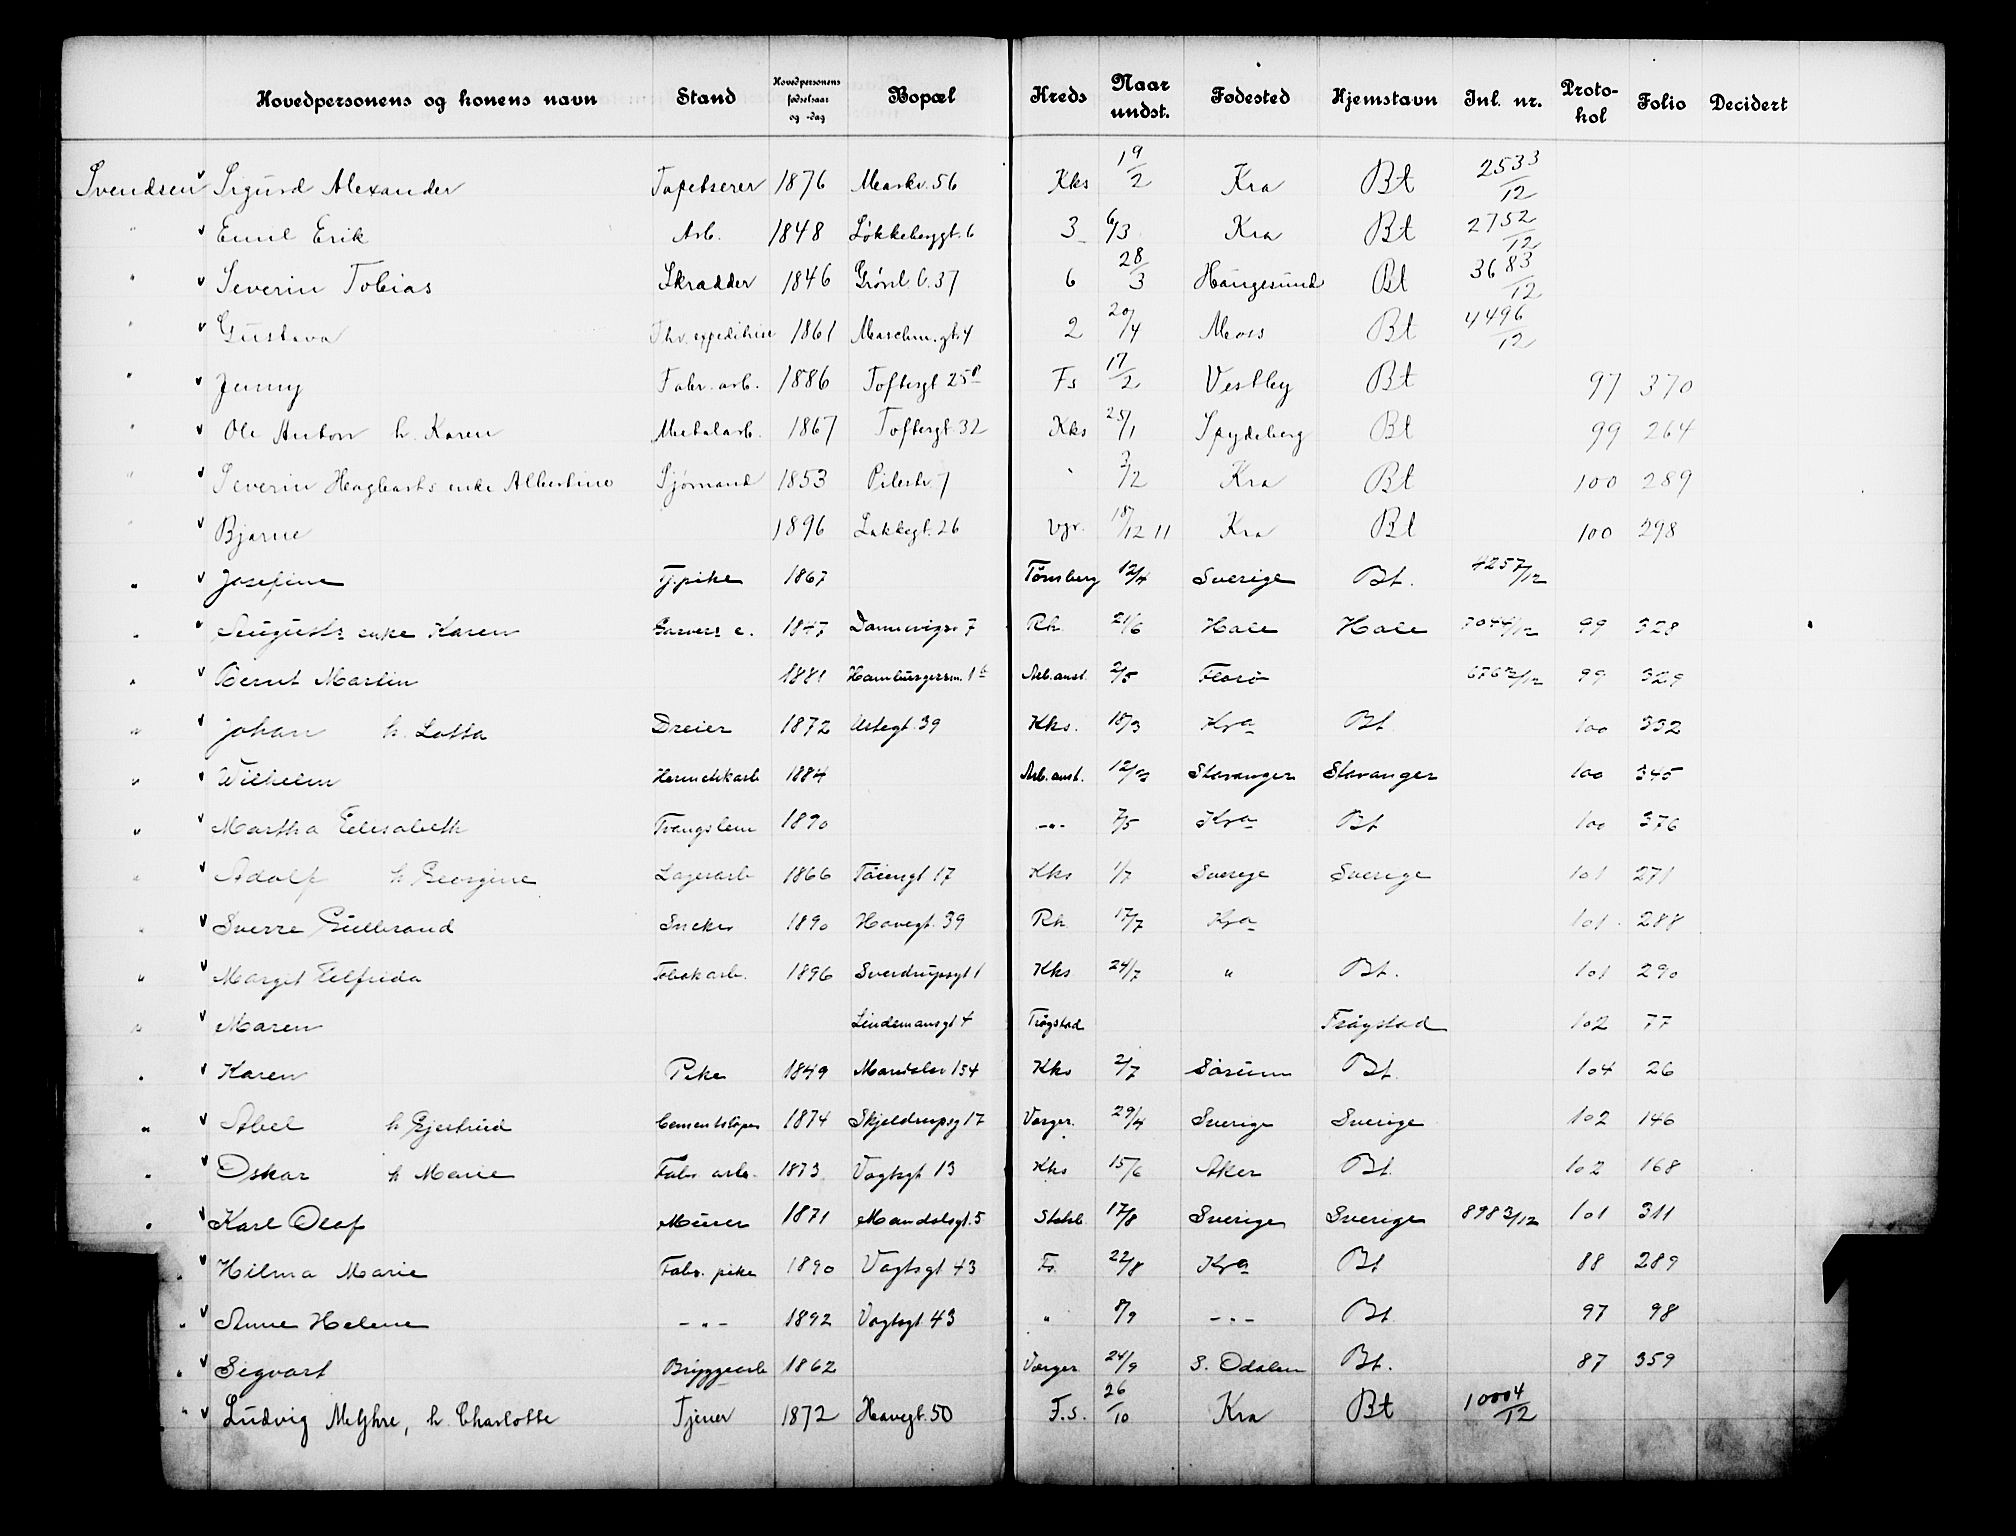 Hovedpersonens og konens navn Stand Hovedpersonens fødselsaar og -dag Bopæl Kreds Naar undst. Fødested Hjemstavn Inl. nr. Protokol Folio Decidert
Svendsen Sigurd Alexander Tapetserer 1876 Maskv. 56 Kks 19/2 Kra Bt 2533/12
" Emil Erik Arb. 1848 Løkkeberggt. 6 3 6/3 Kra Bt 2752/12
" Severin Tobias Skrædder 1846 Grønl. 37 6 28/3 Haugesund Bt 3683/12
" Gustava expeditrice 1861 4 2 20/4 Moss Bt 4496/12
" Jenny Fabr. arb. 1886 Toftesgt 25 Fs 17/2 Vestby Bt 97 370
" Ole Anton h. Karen Metalarb. 1867 Toftesgt. 32 Kks 25/1 Spydeberg Bt 99 264
" Severin Hagbarts enke Albertine Sjømand 1853 Pilestr. 7 " 3/2 Kra Bt 100 289
" Bjarne 1896 Lakkegt. 26 Vgr. 18/12 11 Kra Bt 100 298
" Josefine Tj.pike 1867 Tønsberg 12/4 Sverige Bt. 4257/12
" Augusts enke Karen Garvers e. 1847 Dannevigsv 7 Rh 21/6 Hole Hole 7044/12 99 328
" Bernt Martin 1881 Hamburgersm. 1b Arb.anst. 2/5 Florø 6762/12 99 329
" Johan h. Lotta Dreier 1872 Østegt. 39 Kks. 18/3 Kra Bt 100 332
" Wilhelm Hermetikarb 1884 Arb. anst. 12/3 Stavanger Stavanger 100 345
" Martha Elisabeth Tvangslem 1890 -"- 7/5 Kra Bt 100 376
" Adolf h Georgine Lagerarb 1866 Tøiengt 17 Kks 1/7 Sverige Sverige 101 271
" Sverre Gulbrand Snekr 1890 Havegt. 39 Rh 17/7 Kra 101 288
" Margit Elfrida Tobakarb. 1896 Sverdrupsgt 1 Kks 24/7 " Bt. 101 290
" Maren Lindemansgt 4 Trøgstad Trøgstad 102 77
" Karen Pike 1849 Mandalsv 154 Kks 2/7 Sørum Bt. 104 26
" Abel h Gjertrud Cementstøper 1874 Skjeldrupsg 17 Værger. 29/4 Sverige Sverige 102 146
" Oskar h Marie Fabr. arb. 1873 Vogtsgt 13 Kks 15/6 Aker Bt. 102 168
" Karl Olaf Murer 1871 Mandalsgt. 5 17/8 Sverige Sverige 8983/12 101 311
" Hilma Marie Fabr. pike 1890 Vogtsgt 43 Fs. 22/8 Kra Bt 88 289
" Anne Helene -"- 1892 Vogtsgt. 43 " 8/9 -"- Bt. 97 98
" Segvart Bryggearb 1862 Værger 24/9 S. Odalen Bt. 87 359
" Ludvig Myhre, h. Charlotte Tjener 1872 Havegt. 50 F.s. 26/10 Kra Bt 10004/12